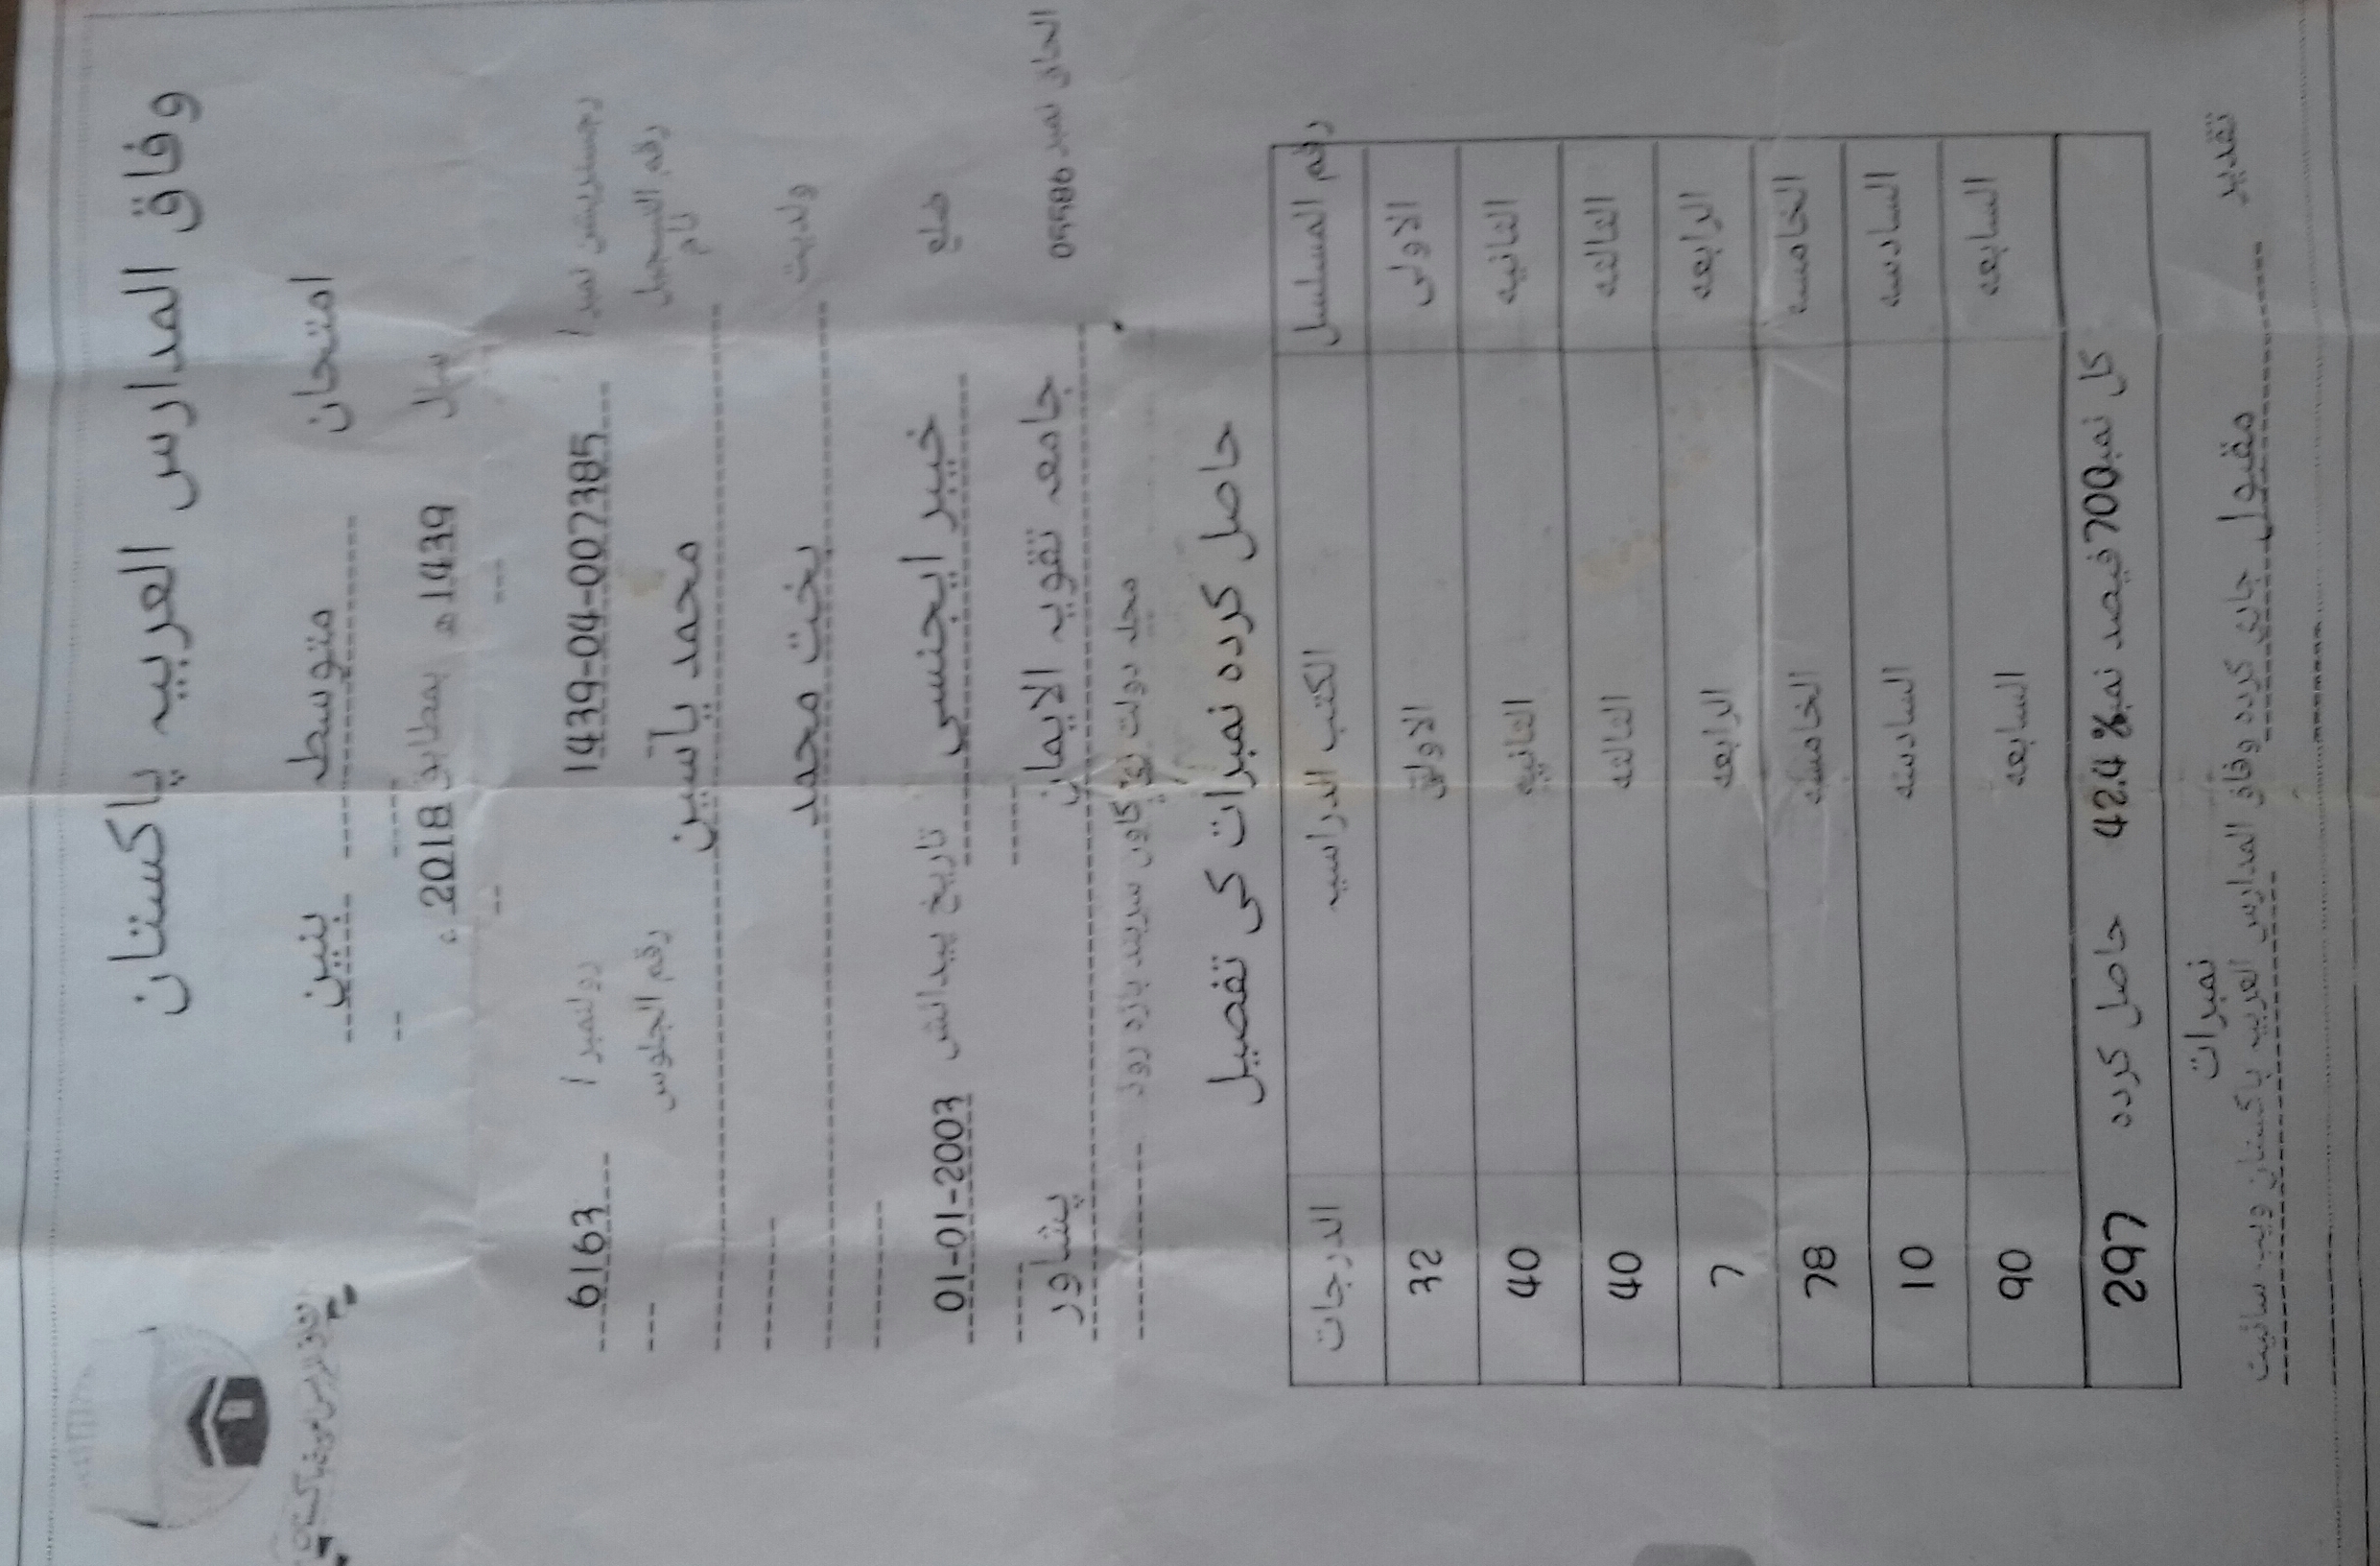 وفاق المدارس العربیہ پاکستان
امتحان متوسطہ بنین
سال 1439ھ بمطابق 2018ء
رجسٹریشن نمبر/ 1439-04-007385 رولنمبر/ 6163
رقم التسجیل رقم الجلوس
نام محمد یاسین
ولدیت بخت محمد
ضلع خیبر ایجنسی تاریخ پیدائش 01-01-2003
الحاق نمبر 05586 جامعہ تقویہ الایمان پشاور
محلہ دولت زئی گاوں سربند باڑہ روڈ
حاصل کردہ نمبرات کی تفصیل
رقم المسلسل الکتب الدراسیہ الدرجات
الاولی الاولی 32
الثانیہ الثانیہ 40
الثالثہ الثالثہ 40
الرابعہ الرابعہ 7
الخامسہ الخامسہ 78
السادسہ السادسہ 10
السابعہ السابعہ 90
کل نمبر 700 فیصد نمبر 42.4% حاصل کردہ نمبرات 297
تقدیر مقبول
جاری کردہ وفاق المدارس العربیہ پاکستان ویب سائیٹ